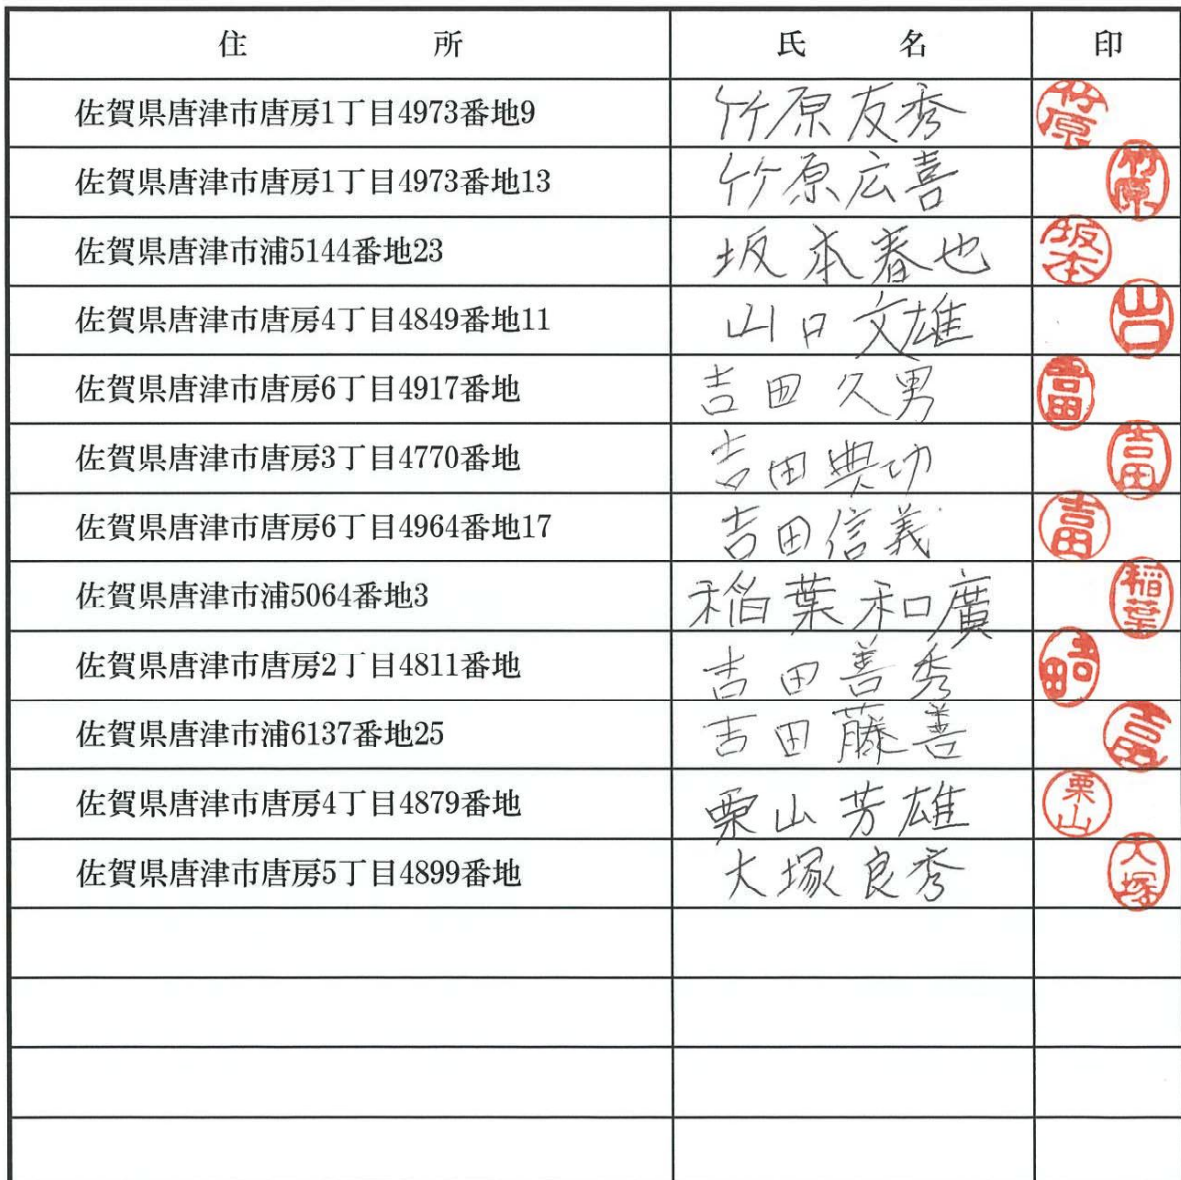 住所 氏名 印
佐賀県唐津市唐房1丁目4973番地9 竹原友秀 竹原
佐賀県唐津市唐房1丁目4973番地13 竹原広喜 竹原
佐賀県唐津市浦5144番地23 坂本春也 坂本
佐賀県唐津市唐房4丁目4849番地11 山口文雄 山口
佐賀県唐津市唐房6丁目4917番地 吉田久男 吉田
佐賀県唐津市唐房3丁目4770番地 吉田典功 吉田
佐賀県唐津市唐房6丁目4964番地17 吉田信義 吉田
佐賀県唐津市浦5064番地3 稲葉和廣 稲葉
佐賀県唐津市唐房2丁目4811番地 吉田善秀 吉田
佐賀県唐津市浦6137番地25 吉田藤善 吉田
佐賀県唐津市唐房4丁目4879番地 栗山芳雄 栗山
佐賀県唐津市唐房5丁目4899番地 大塚良秀 大塚